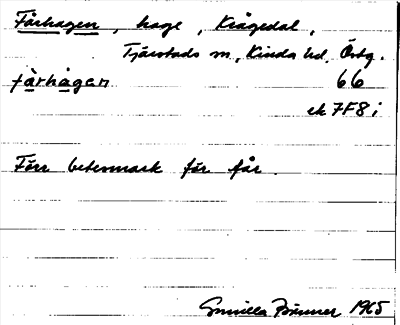 Fårhagen, hage, Krågedal,
Tjärstads sn, Kinda hd, Östg.
fårhågen 66
ek 7F8i
Förr betesmark för får.
Gunilla Brunner 1965